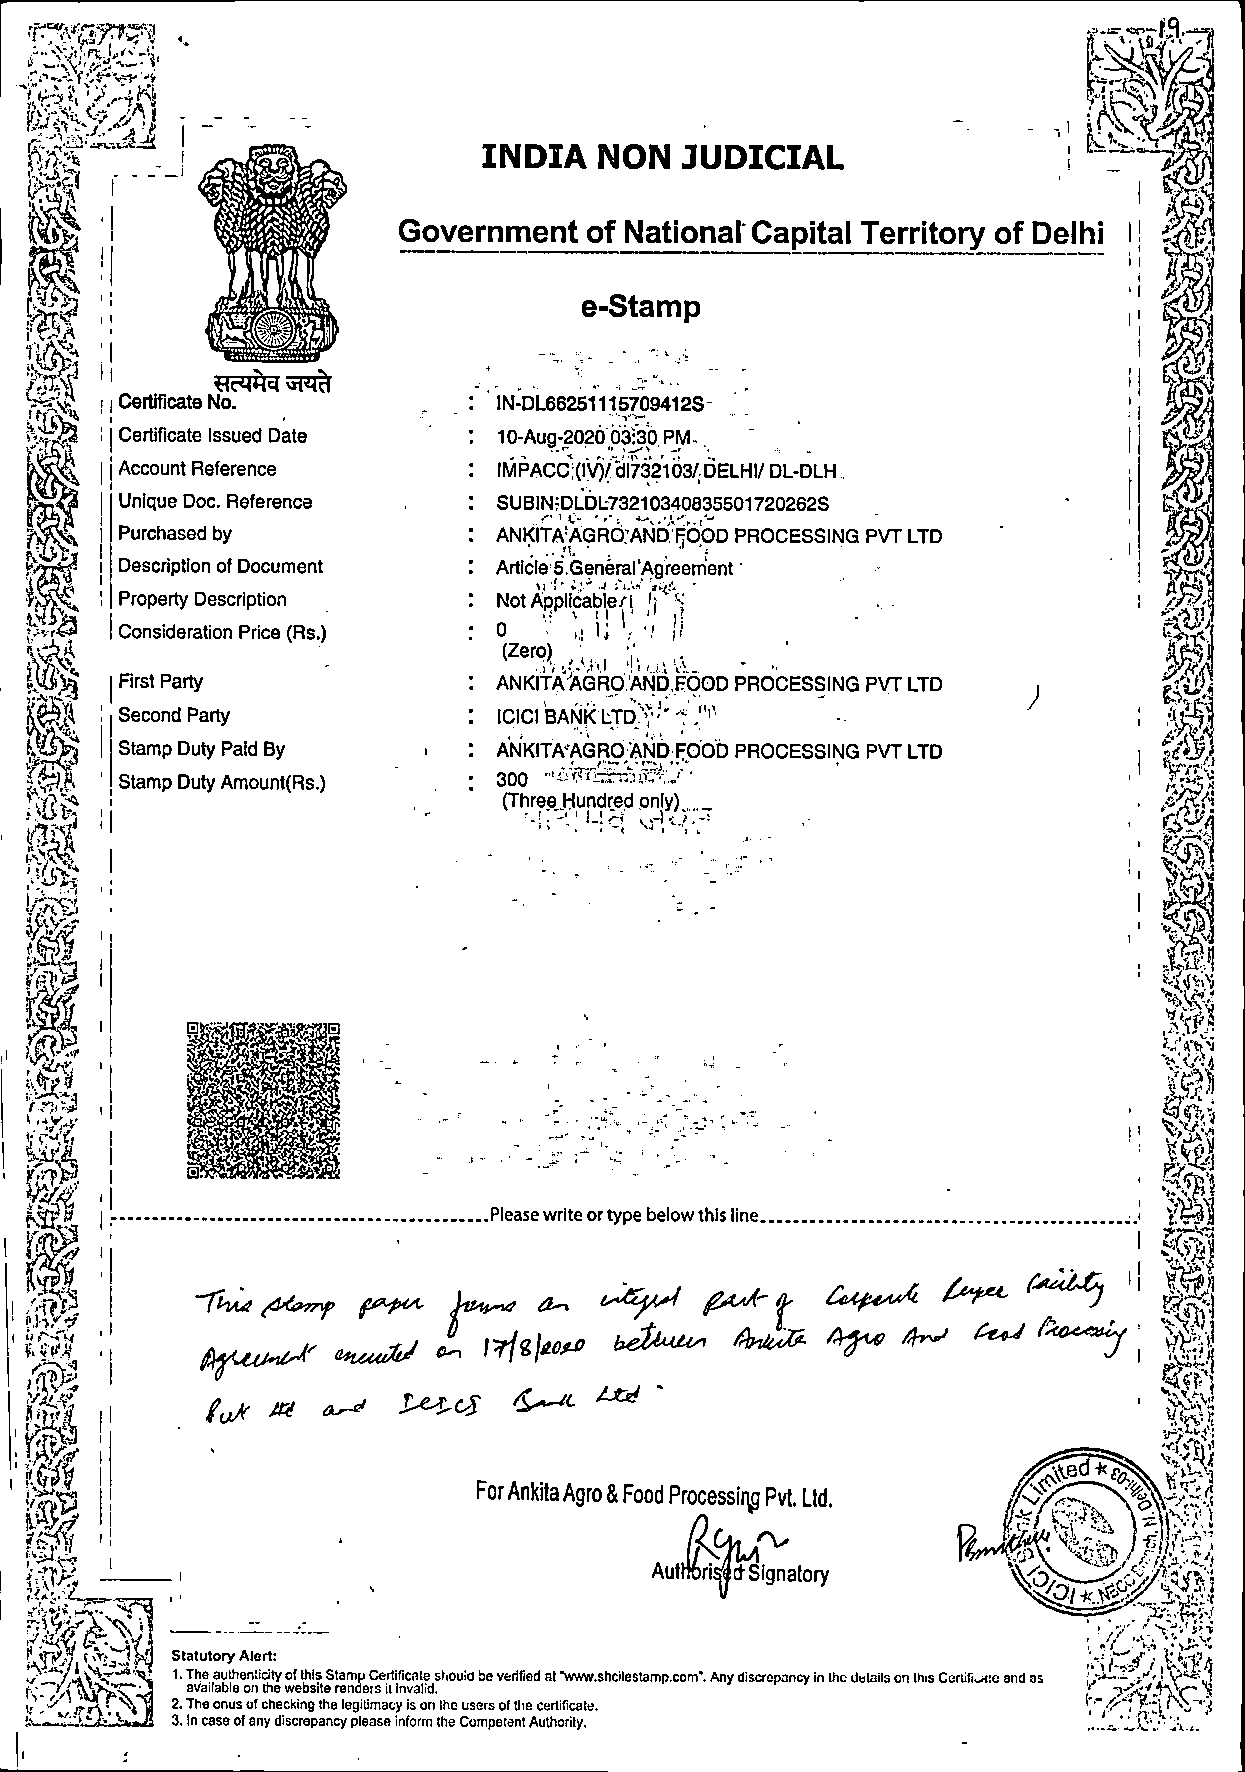 19
INDIA NON JUDICIAL
Government of National Capital Territory of Delhi
e-Stamp
सत्यमेव जयते
Certificate No. : IN-DL66251115709412S
Certificate Issued Date : 10-Aug-2020 03:30 PM
Account Reference : IMPACC (IV)/ dl732103/ DELHI/ DL-DLH
Unique Doc. Reference : SUBIN-DLDL73210340835501720262S
Purchased by : ANKITA AGRO AND FOOD PROCESSING PVT LTD
Description of Document : Article 5 General Agreement
Property Description : Not Applicable
Consideration Price (Rs.) : 0
(Zero)
First Party : ANKITA AGRO AND FOOD PROCESSING PVT LTD
Second Party : ICICI BANK LTD
Stamp Duty Paid By : ANKITA AGRO AND FOOD PROCESSING PVT LTD
Stamp Duty Amount(Rs.) : 300
(Three Hundred only)
सत्यमेव जयते
Please write or type below this line
This stamp paper forms an integral part of Corporate Buyer Facility
Agreement executed on 17/8/2020 between Ankita Agro And Food Processing
Pvt Ltd and ICICI Bank Ltd.
For Ankita Agro & Food Processing Pvt. Ltd.
Authorised Signatory
ICICI Bank Limited * N.Delhi-03
Statutory Alert:
1. The authenticity of this Stamp Certificate should be verified at "www.shcilestamp.com". Any discrepancy in the details on this Certificate and as
available on the website renders it invalid.
2. The onus of checking the legitimacy is on the users of the certificate.
3. In case of any discrepancy please inform the Competent Authority.